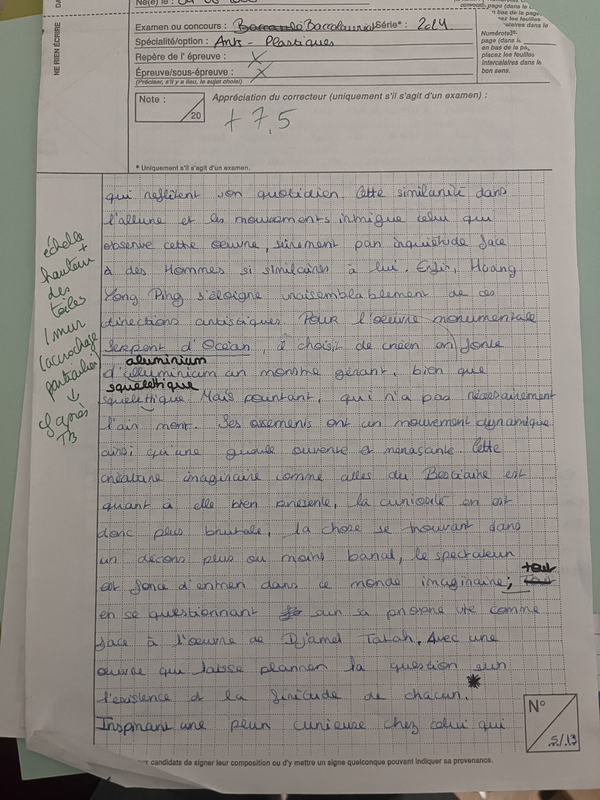 Né(e) le :
Examen ou concours : Baccalauréat Série* : 2024
Spécialité/option : Arts - Plastiques
Repère de l'épreuve : X
Épreuve/sous-épreuve : X
(Préciser, s'il y a lieu, le sujet choisi)
NE RIEN ÉCRIRE
Numérotez
page (dans la
en bas de la page
placez les feuilles
intercalaires dans le
bon sens.
Note :
20
Appréciation du correcteur (uniquement s'il s'agit d'un examen) :
+ 7,5
* Uniquement s'il s'agit d'un examen.
échelle
+
hauteur
des
toiles
/ mur
(accrochage
particulier)
↓
TB
qui reflètent son quotidien. Cette similarité dans
l'allure et les mouvements intrigue celui qui
observe cette oeuvre, sûrement par inquiétude face
à des Hommes si similaires à lui. Enfin, Huang
Yong Ping s'éloigne de ces
directions artistiques. Pour l'oeuvre monumentale
Serpent d'Océan, il choisit de créer en fonte
aluminium
d'alluminium un monstre géant, bien que
squelettique
squelettique. Mais pourtant, qui n'a pas nécessairement
l'air mort. Ses ossements ont un mouvement dynamique
ainsi qu'une gueule ouverte et menaçante. Cette
créature imaginaire comme celles du Bestiaire est
quant à elle bien présente, la curiosité en est
donc plus brutale, la chose se trouvant dans
un décors plus ou moins banal, le spectateur
est forcé d'entrer dans ce monde imaginaire ; tout
en se questionnant sur sa propre vie comme
face à l'oeuvre de Djamel Tatah, Avec une
oeuvre qui laisse planner la question sur
l'existence et la finitude de chacun. *
Inspirant une peur curieuse chez celui qui
N°
5/13
aux candidats de signer leur composition ou d'y mettre un signe quelconque pouvant indiquer sa provenance.